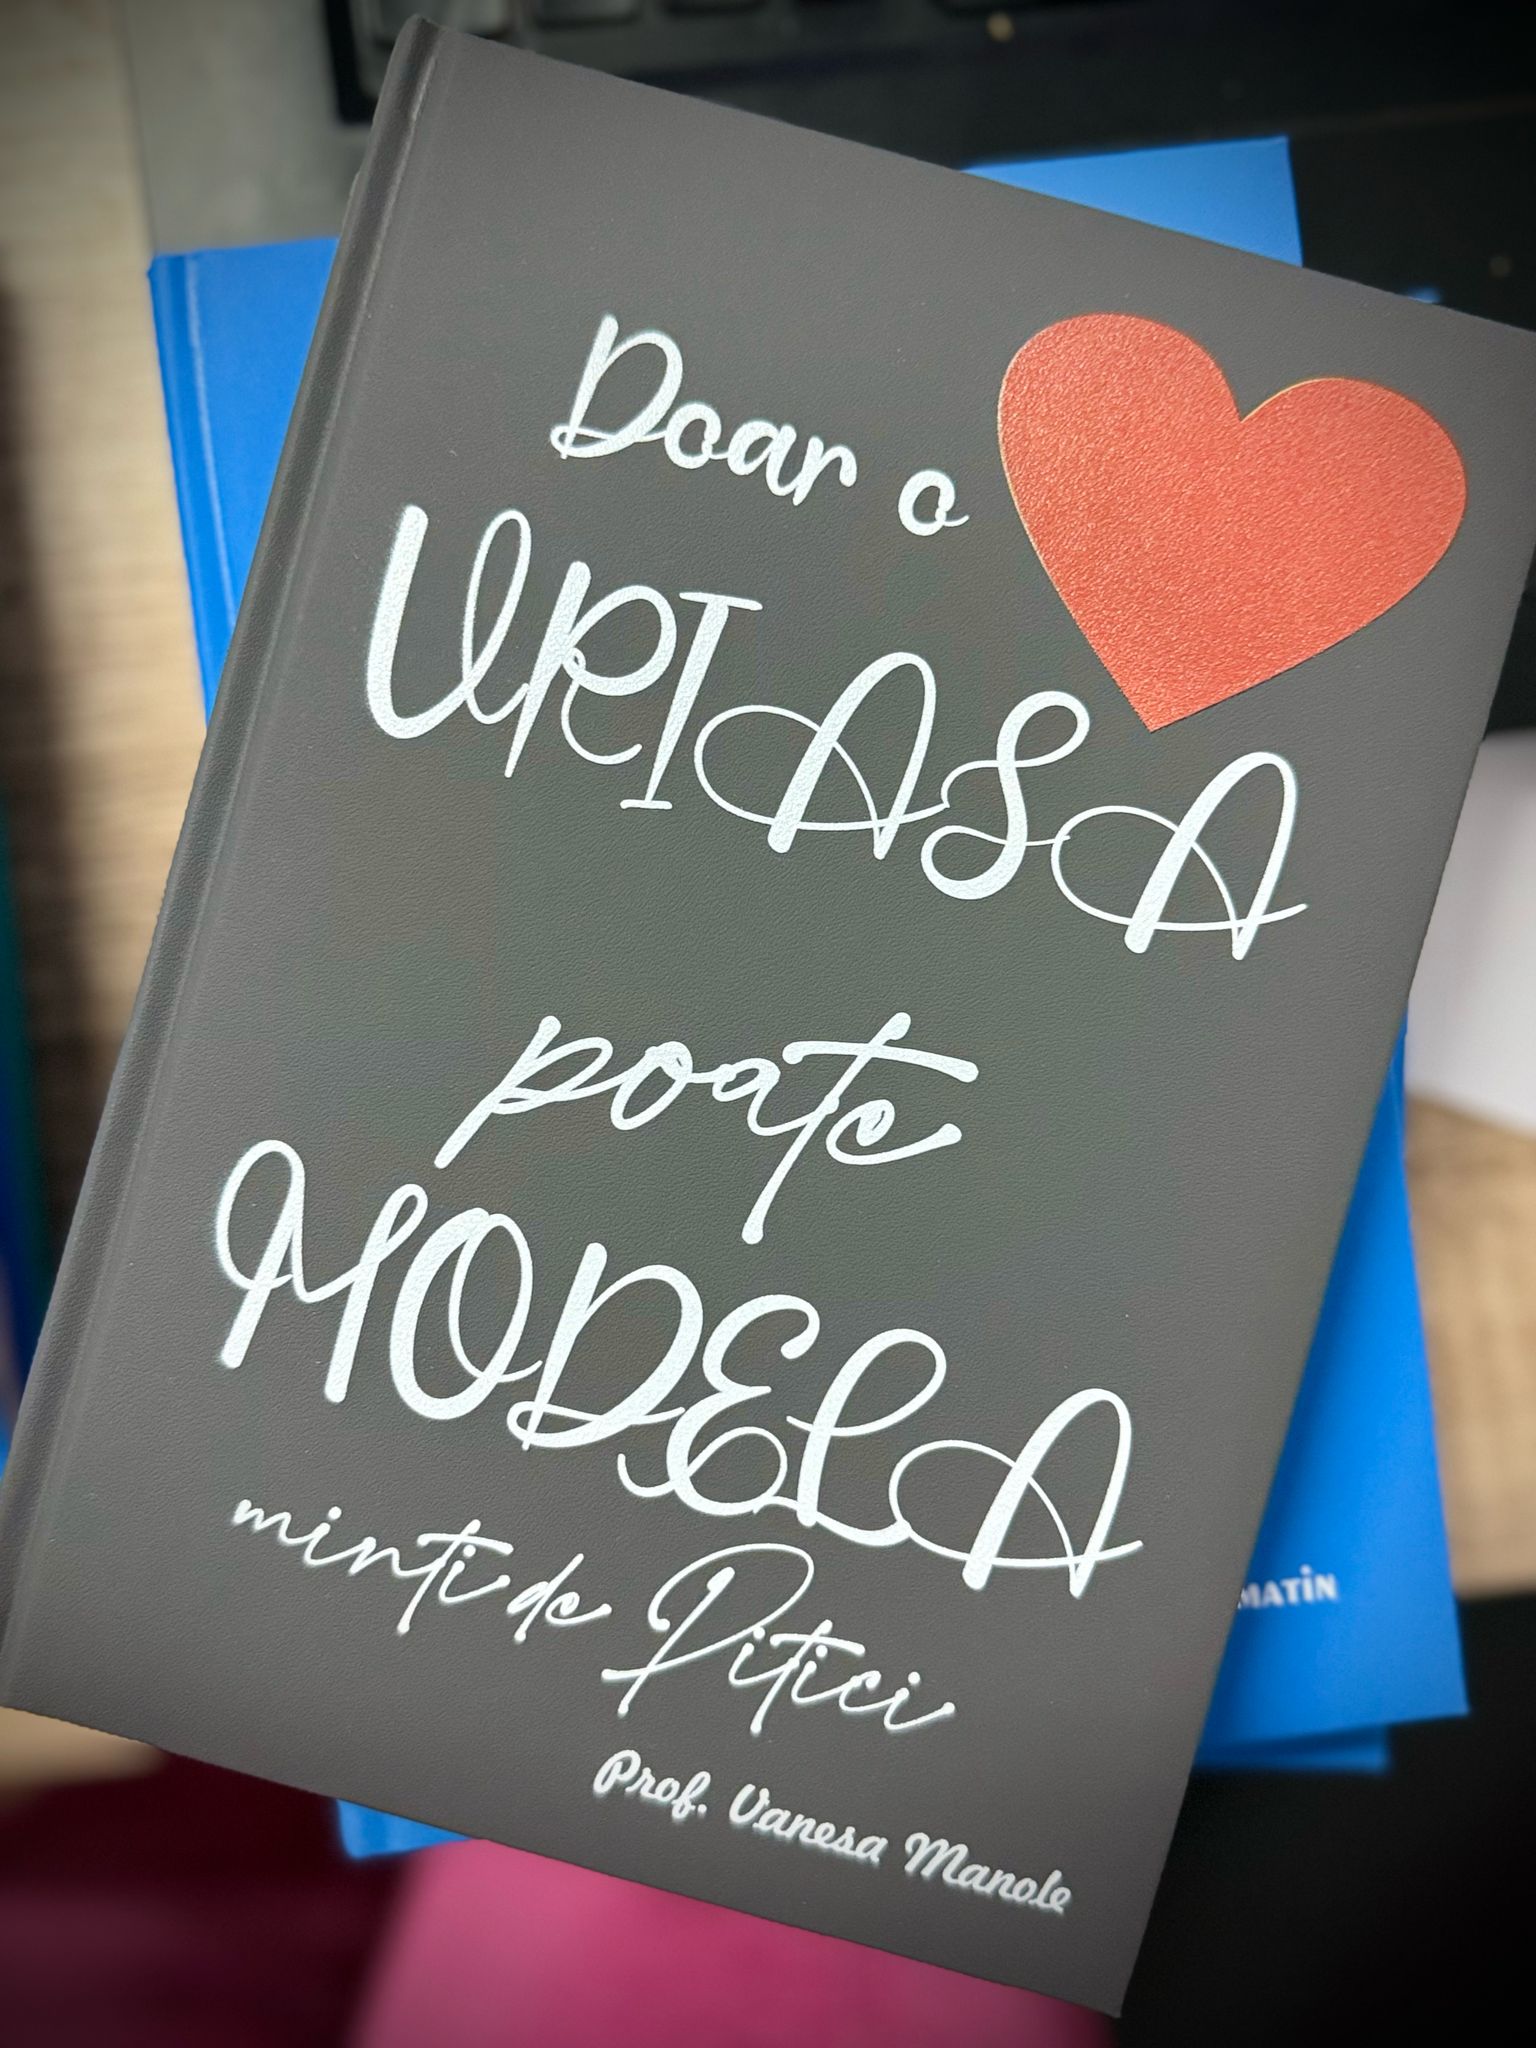 Doar o
URIASA
poate
MODELA
minti de Pitici
Prof. Vanesa Manole
MATİN